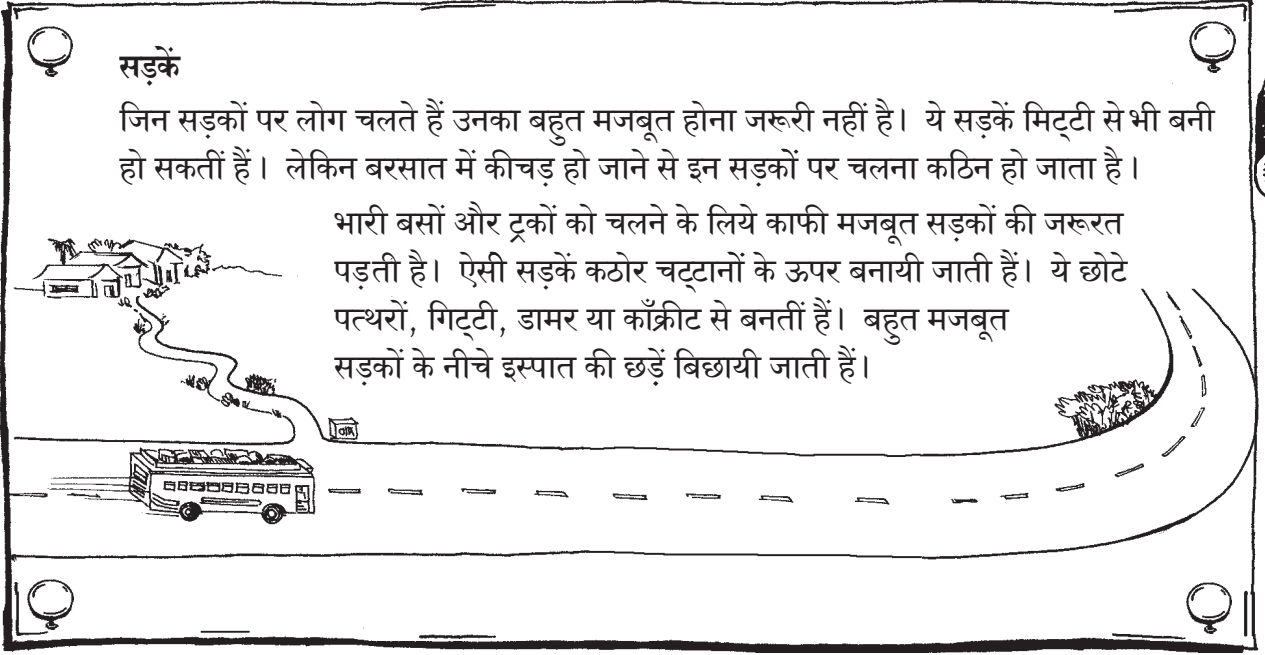 सड़कें
जिन सड़कों पर लोग चलते हैं उनका बहुत मजबूत होना जरूरी नहीं है। ये सड़कें मिट्टी से भी बनी
हो सकतीं हैं। लेकिन बरसात में कीचड़ हो जाने से इन सड़कों पर चलना कठिन हो जाता है।
भारी बसों और ट्रकों को चलने के लिये काफी मजबूत सड़कों की जरूरत
पड़ती है। ऐसी सड़कें कठोर चट्टानों के ऊपर बनायी जाती हैं। ये छोटे
पत्थरों, गिट्टी, डामर या काँक्रीट से बनतीं हैं। बहुत मजबूत
सड़कों के नीचे इस्पात की छड़ें बिछायी जाती हैं।